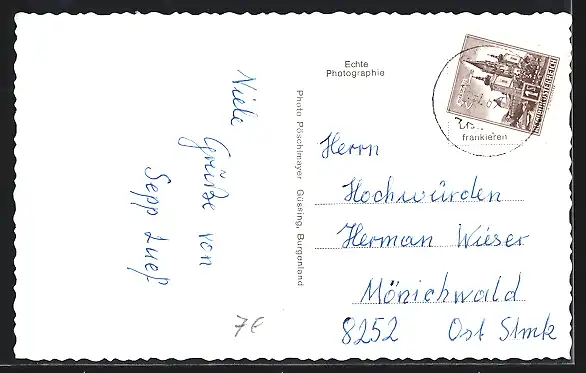 Viele
Grüße von
Sepp Luef
7€
Photo Pöschlmayer Güssing, Burgenland
Echte
Photographie
frankieren
Herrn
Hochwürden
Herman Wieser
Mönichwald
8252 Ost Stmk